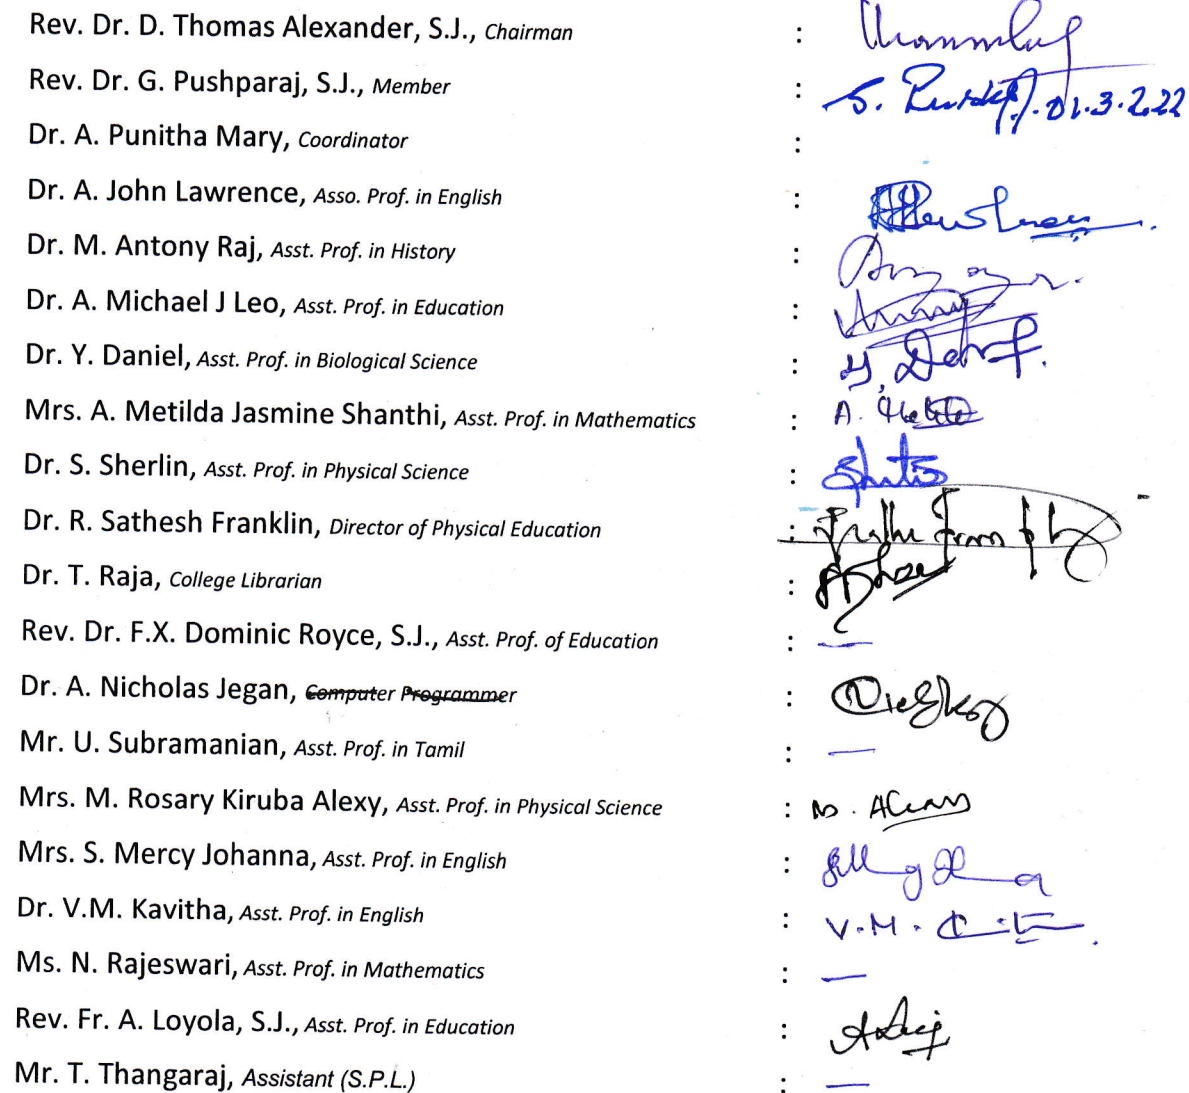 Rev. Dr. D. Thomas Alexander, S.J., Chairman :
Rev. Dr. G. Pushparaj, S.J., Member : 01.3.2022
Dr. A. Punitha Mary, Coordinator :
Dr. A. John Lawrence, Asso. Prof. in English :
Dr. M. Antony Raj, Asst. Prof. in History :
Dr. A. Michael J Leo, Asst. Prof. in Education :
Dr. Y. Daniel, Asst. Prof. in Biological Science : Y.
Mrs. A. Metilda Jasmine Shanthi, Asst. Prof. in Mathematics : A.
Dr. S. Sherlin, Asst. Prof. in Physical Science :
Dr. R. Sathesh Franklin, Director of Physical Education :
Dr. T. Raja, College Librarian :
Rev. Dr. F.X. Dominic Royce, S.J., Asst. Prof. of Education : —
Dr. A. Nicholas Jegan, Computer Programmer :
Mr. U. Subramanian, Asst. Prof. in Tamil : —
Mrs. M. Rosary Kiruba Alexy, Asst. Prof. in Physical Science :
Mrs. S. Mercy Johanna, Asst. Prof. in English :
Dr. V.M. Kavitha, Asst. Prof. in English : V.M.
Ms. N. Rajeswari, Asst. Prof. in Mathematics : —
Rev. Fr. A. Loyola, S.J., Asst. Prof. in Education :
Mr. T. Thangaraj, Assistant (S.P.L.) : —